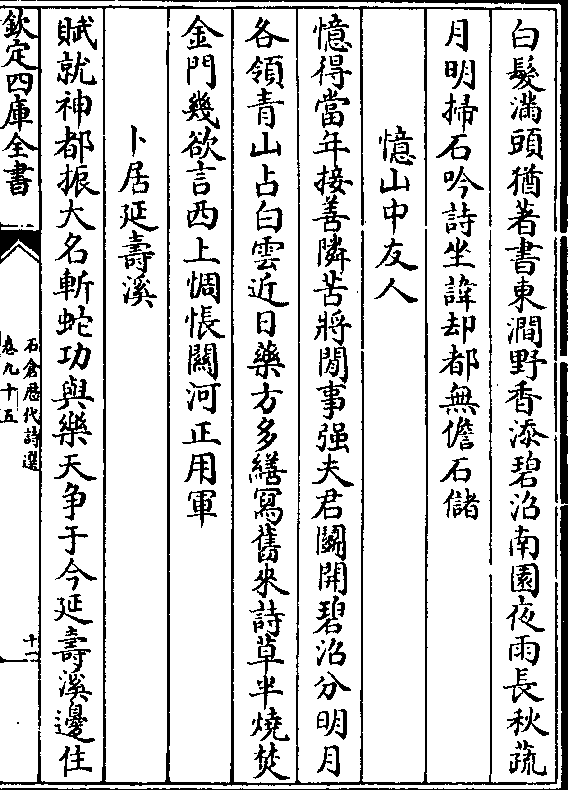 白髮滿頭猶著書東澗野香添碧沼南園夜雨長秋蔬
月明掃石吟詩坐諱却都無儋石儲
憶山中友人
憶得當年接善隣苦將閒事强夫君闢開碧沼分明月
各領青山占白雲近日藥方多繕寫舊來詩草半燒焚
金門幾欲言西上惆悵關河正用軍
卜居延壽溪
賦就神都振大名斬蛇功與樂天争于今延壽溪邊住
欽定四庫全書
石倉歴代詩選
卷九十五
十一